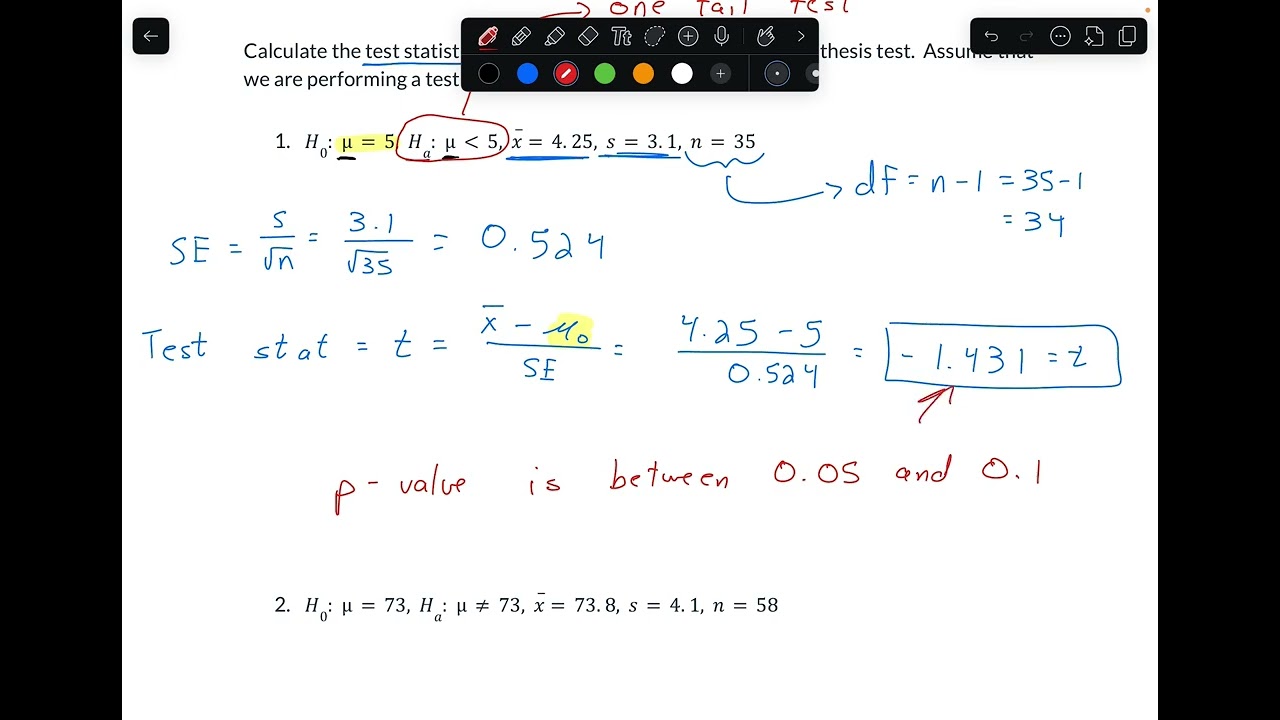 one tail test
Calculate the test statist thesis test. Assume that
we are performing a test
1. H₀: μ = 5, Hₐ: μ < 5, x̄ = 4.25, s = 3.1, n = 35
df = n - 1 = 35 - 1
= 34
SE = s/√n = 3.1/√35 = 0.524
Test stat = t = (x̄ - μ₀)/SE = (4.25 - 5)/0.524 = -1.431 = t
p-value is between 0.05 and 0.1
2. H₀: μ = 73, Hₐ: μ ≠ 73, x̄ = 73.8, s = 4.1, n = 58